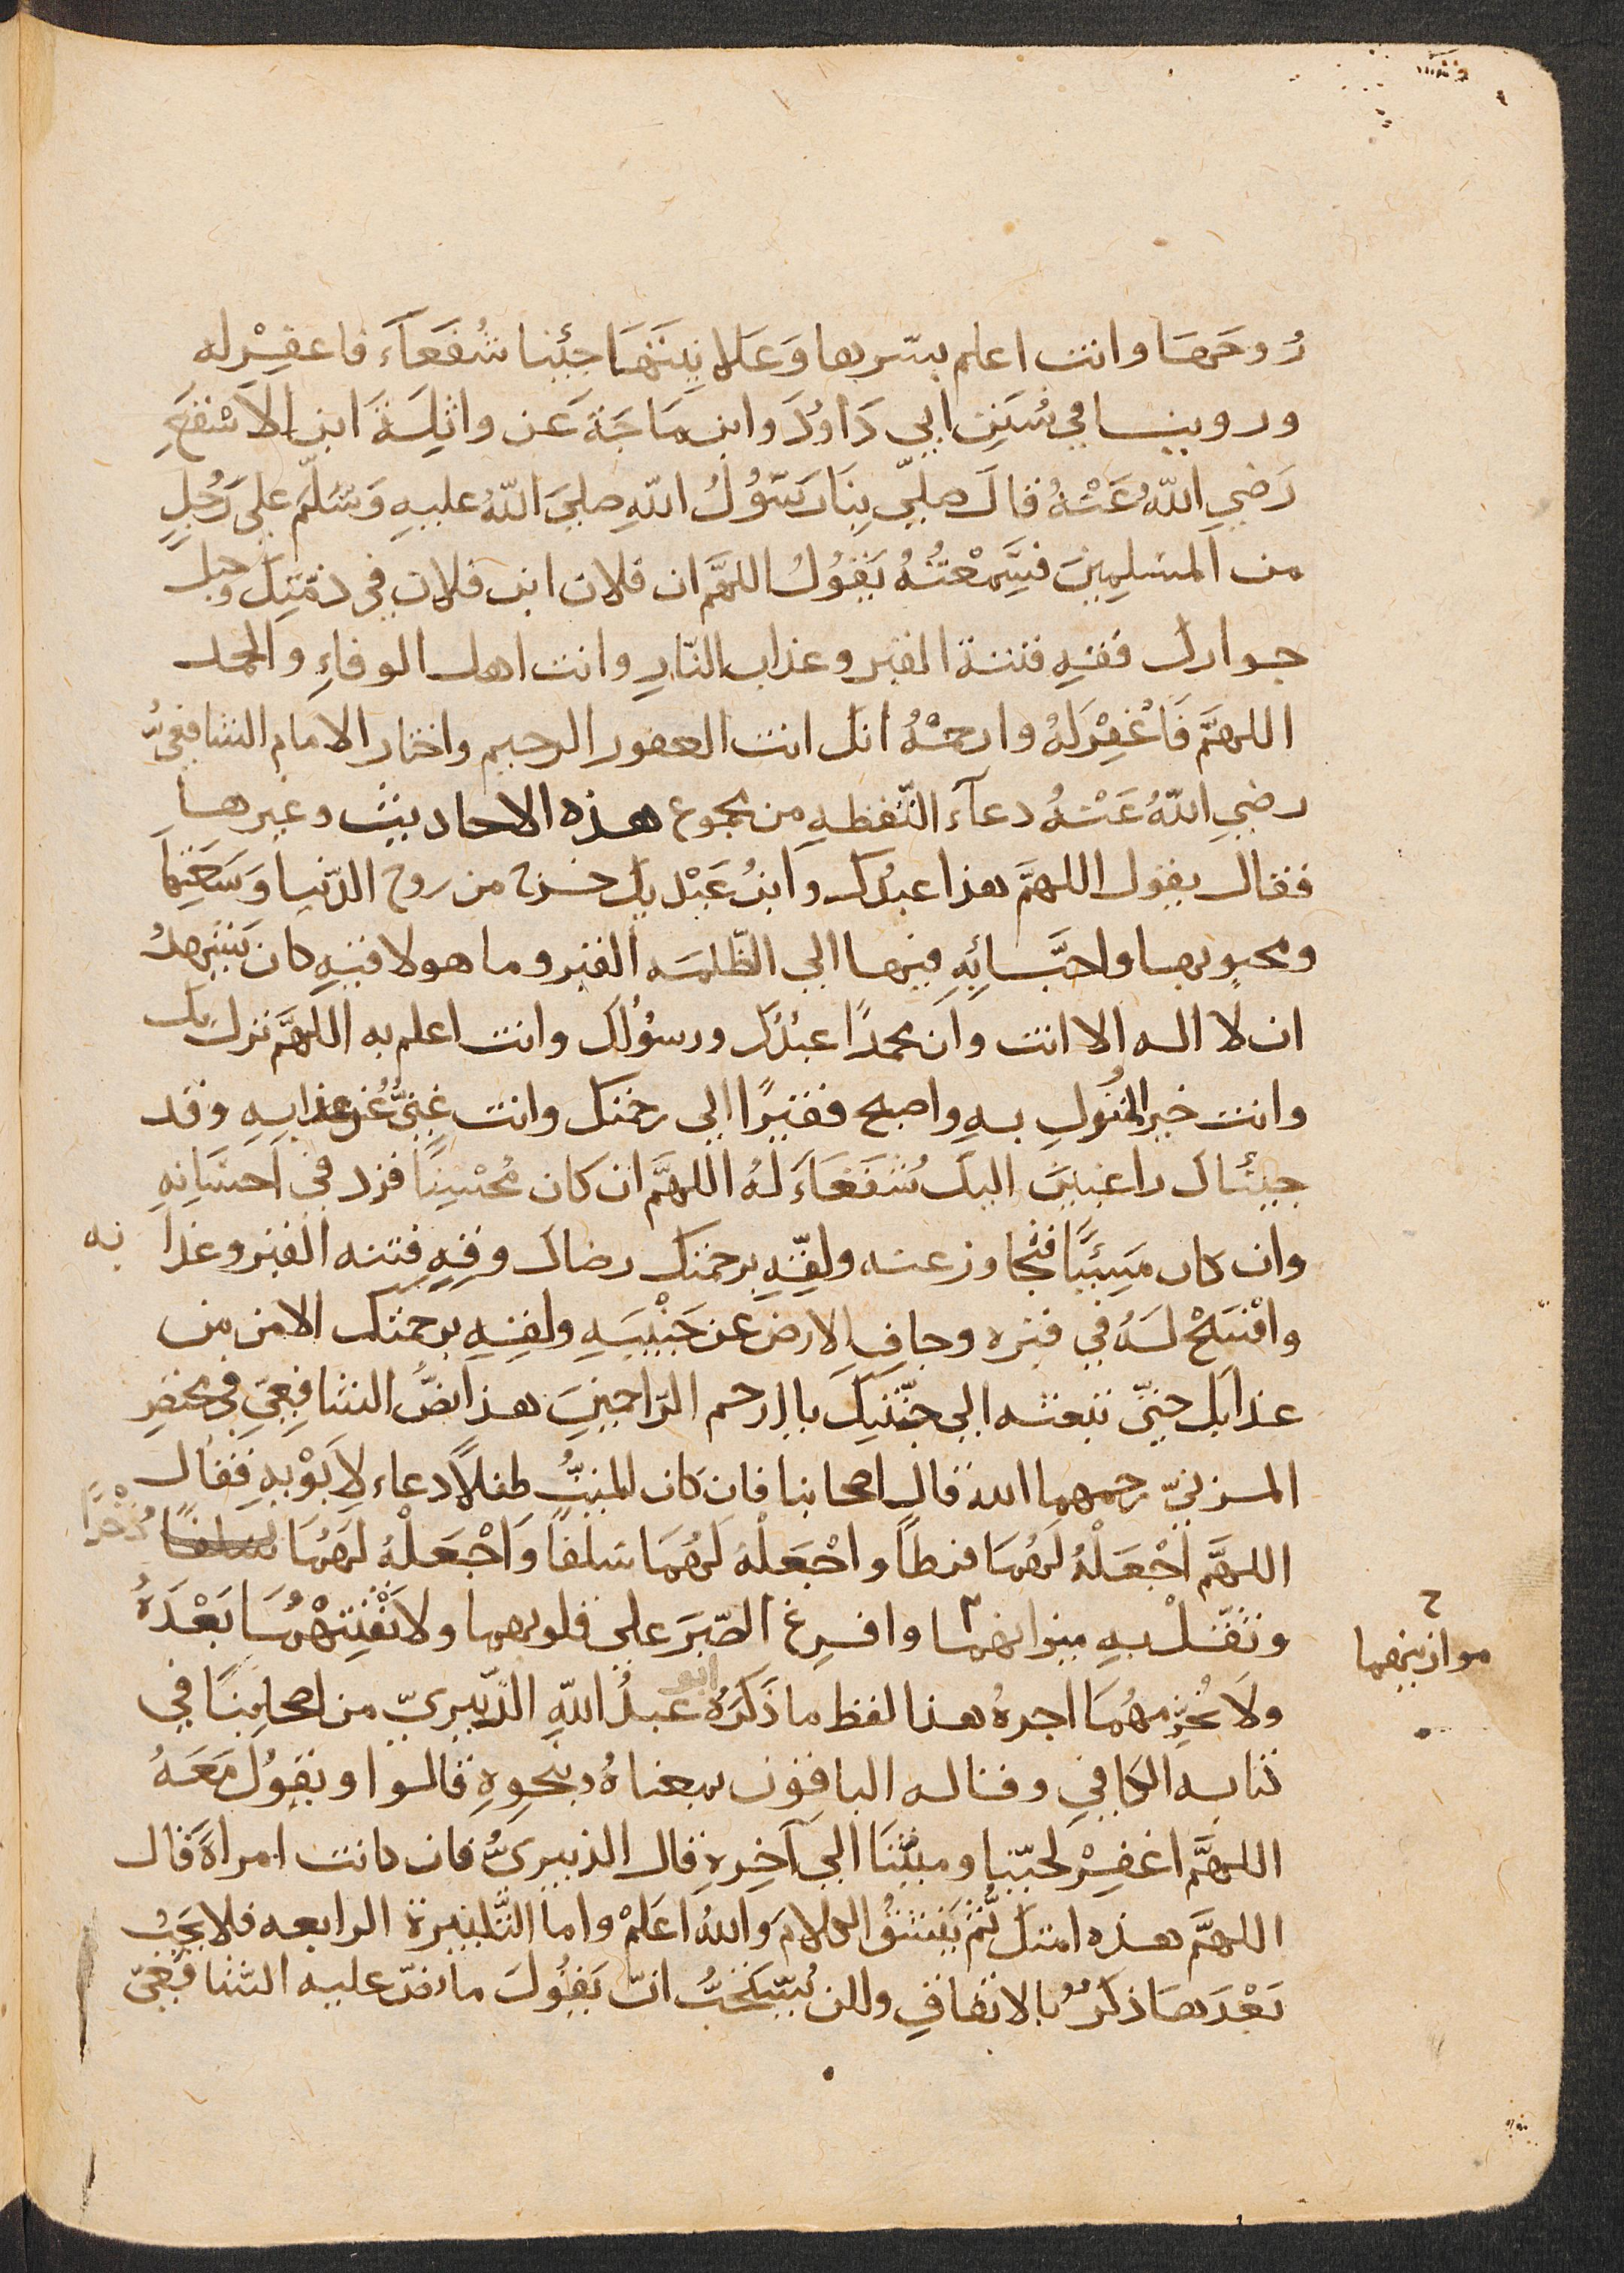 رُوحَهَا وانت اعلم بسّرها وَعَلانِيَتَهَا جئنا شُفَعَآءَ فاغفِرْ له
وروينا في سُنَنِ ابي دَاوُدَ وابن مَاجَةَ عَن واثِلَةَ ابن الاَسْقَعِ
رَضِي اللّٰهُ عَنْهُ قالَ صلّي بِنَا رَسُوُلُ اللّٰهِ صليَ اللّٰهُ عليهِ وَسَلّمَ علي رَجُلٍ
من المسْلِمِينَ فسَمِعْتُهُ يَقوُلُ اللهمَّ ان فلان ابن فلان في ذمّتِكَ وحبل
جوارك فقهِ فتنة القبر وعذاب النّارِ وانت اهل الوفاءِ والحمد
اللهمَّ فَاغْفِرْ لَهُ وارحمْهُ انك انت الغفور الرحيم واختار الامام الشافعيُّ
رضي اللّٰهُ عَنْهُ دعآءَ التَقطهِ من مجموع هذه الاحاديث وغيرها
فقال يقول اللهمَّ هذا عبدُك وابنُ عَبْدَيك خرج من روح الدّنيا وَسَعَتِهَا
ومحبوبها واحبَّائِهِ فيها الي الظّلمه القبر وما هو لاقيهِ كان يَشهدُ
ان لا اله الا انت وان محمدًا عبدُك ورسوُلك وانت اعلم به اللهمَّ نزل بك
وانت خير المنزُولِ بهِ واصبح فقيرًا الي رحمتك وانت غنيٌّ عُن عذابهِ وقد
جيئناك راغبين اليك شُفَعَآءَ لَهُ اللهمَّ ان كان مُحْسِنًا فزد في اَحسَانِهِ
وان كان مَسِيئًا فتجاوز عنه ولقّهِ برحمتك رضاك وقِهِ فتنه القبر وعذا به
وافْسَحْ لَهُ في قبره وجافِ الارض عن جَنْبيهِ ولقهِ برحمتك الامن من
عذابك حتىّ تبعثه الي جنّتِكَ يا ارحم الرّاحمينَ هذا نصُّ الشافِعيّ في مختصرِ
المزنيّ رحمهما الله قال اصحابنا فان كان الميتُ طفلاً دعاء لاَبَوْيهِ فقال
اللهمَّ اجْعَلْهُ لَهُمَا فرطاً واجْعَلْهُ لَهُمَا سَلفاً وَاجْعَلْهُ لَهُمَا سلفًا ذُخْرًا
وثقّلْ بهِ ميزانهما وافرِغ الصّبَرَ علي قلوبهما ولا تَفْتِنْهُمَا بَعْدَهُ
ح
موازينهما
ولَا تُحْرِمهُمَا اجرهُ هذا لفظ ما ذَكَرَهُ ابو عبدُ اللّٰهِ الزّبيريّ من اصحابِنَا في
كتابه الكافي وقاله الباقون بمعناهُ وبنحوِهِ قالوا ويقوُلَ مَعَهُ
اللهمَّ اغفِرْ لحيّنا وميّتنَا الي آخِرهِ قال الزبيريُّ فان كانت امراة قال
اللهمَّ هذه امتكَ ثُمَّ يَنسقُ الكلامَ وَاللّٰهُ اعَلمْ واما التّكبيرة الرابعه فلا يجبُ
بَعْدَهَا ذكرٌ بالاتفاقِ ولكن يُستَحَبُّ انّ يَقوُلَ ما نصّ عليه الشافعيّ